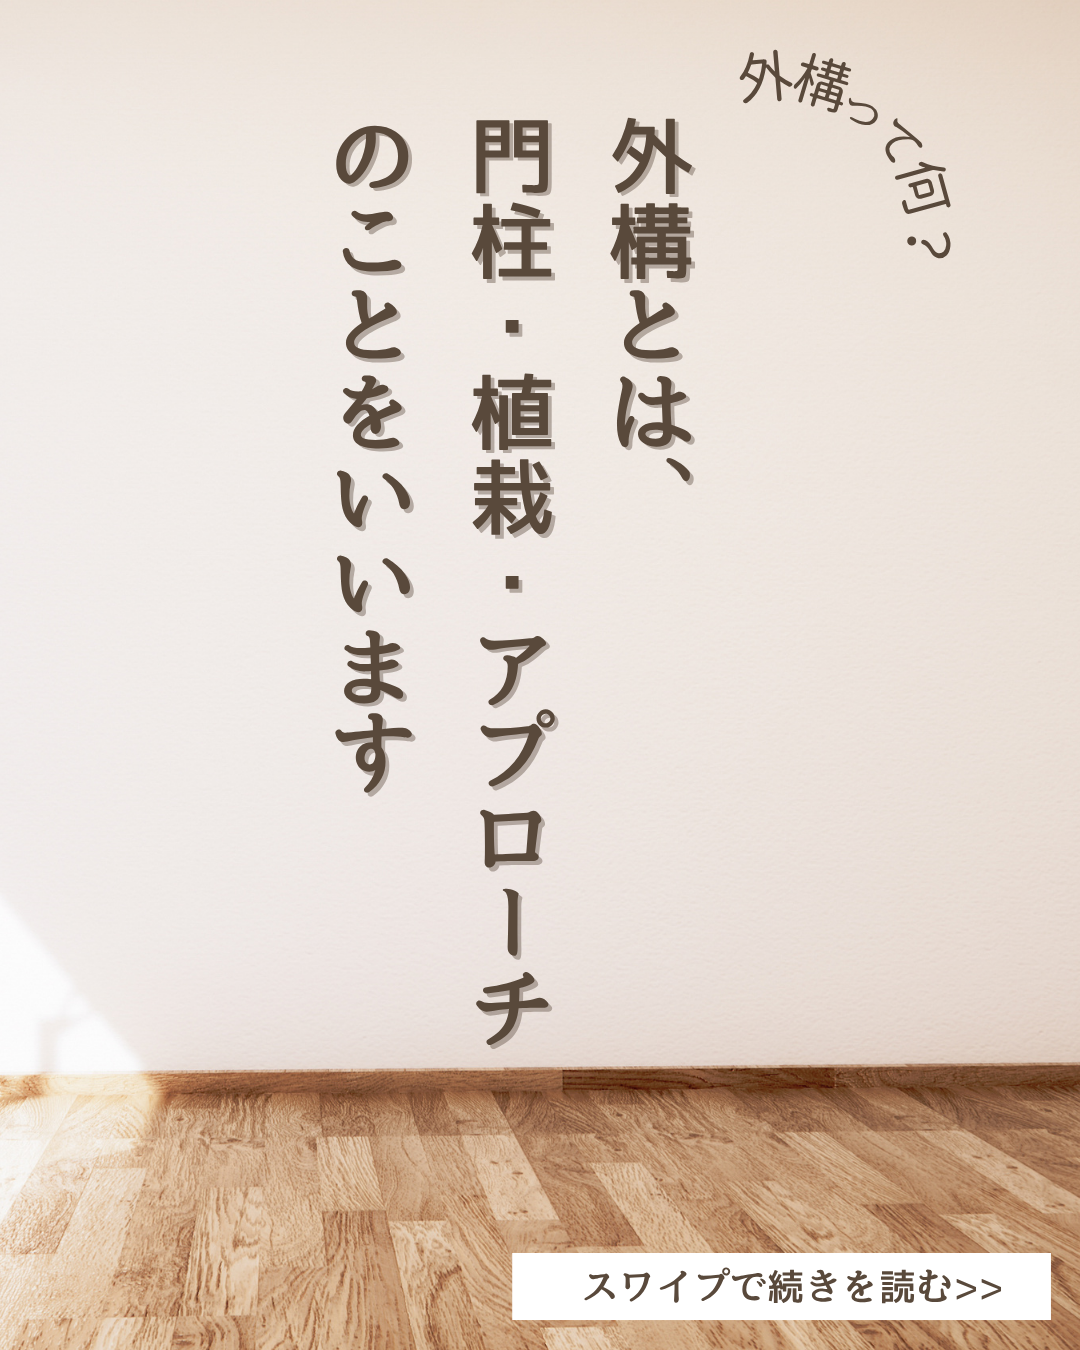 外構って何?
外構とは、
門柱・植栽・アプローチ
のことをいいます
スワイプで続きを読む>>